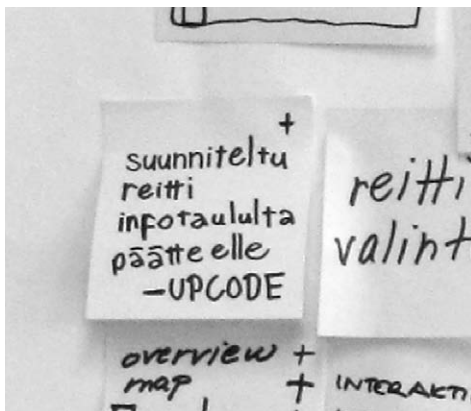 +
suunniteltu
reitti
infotaululta
päätteelle
-UPCODE
reitti
valint
overview +
map +
INTERAKTI